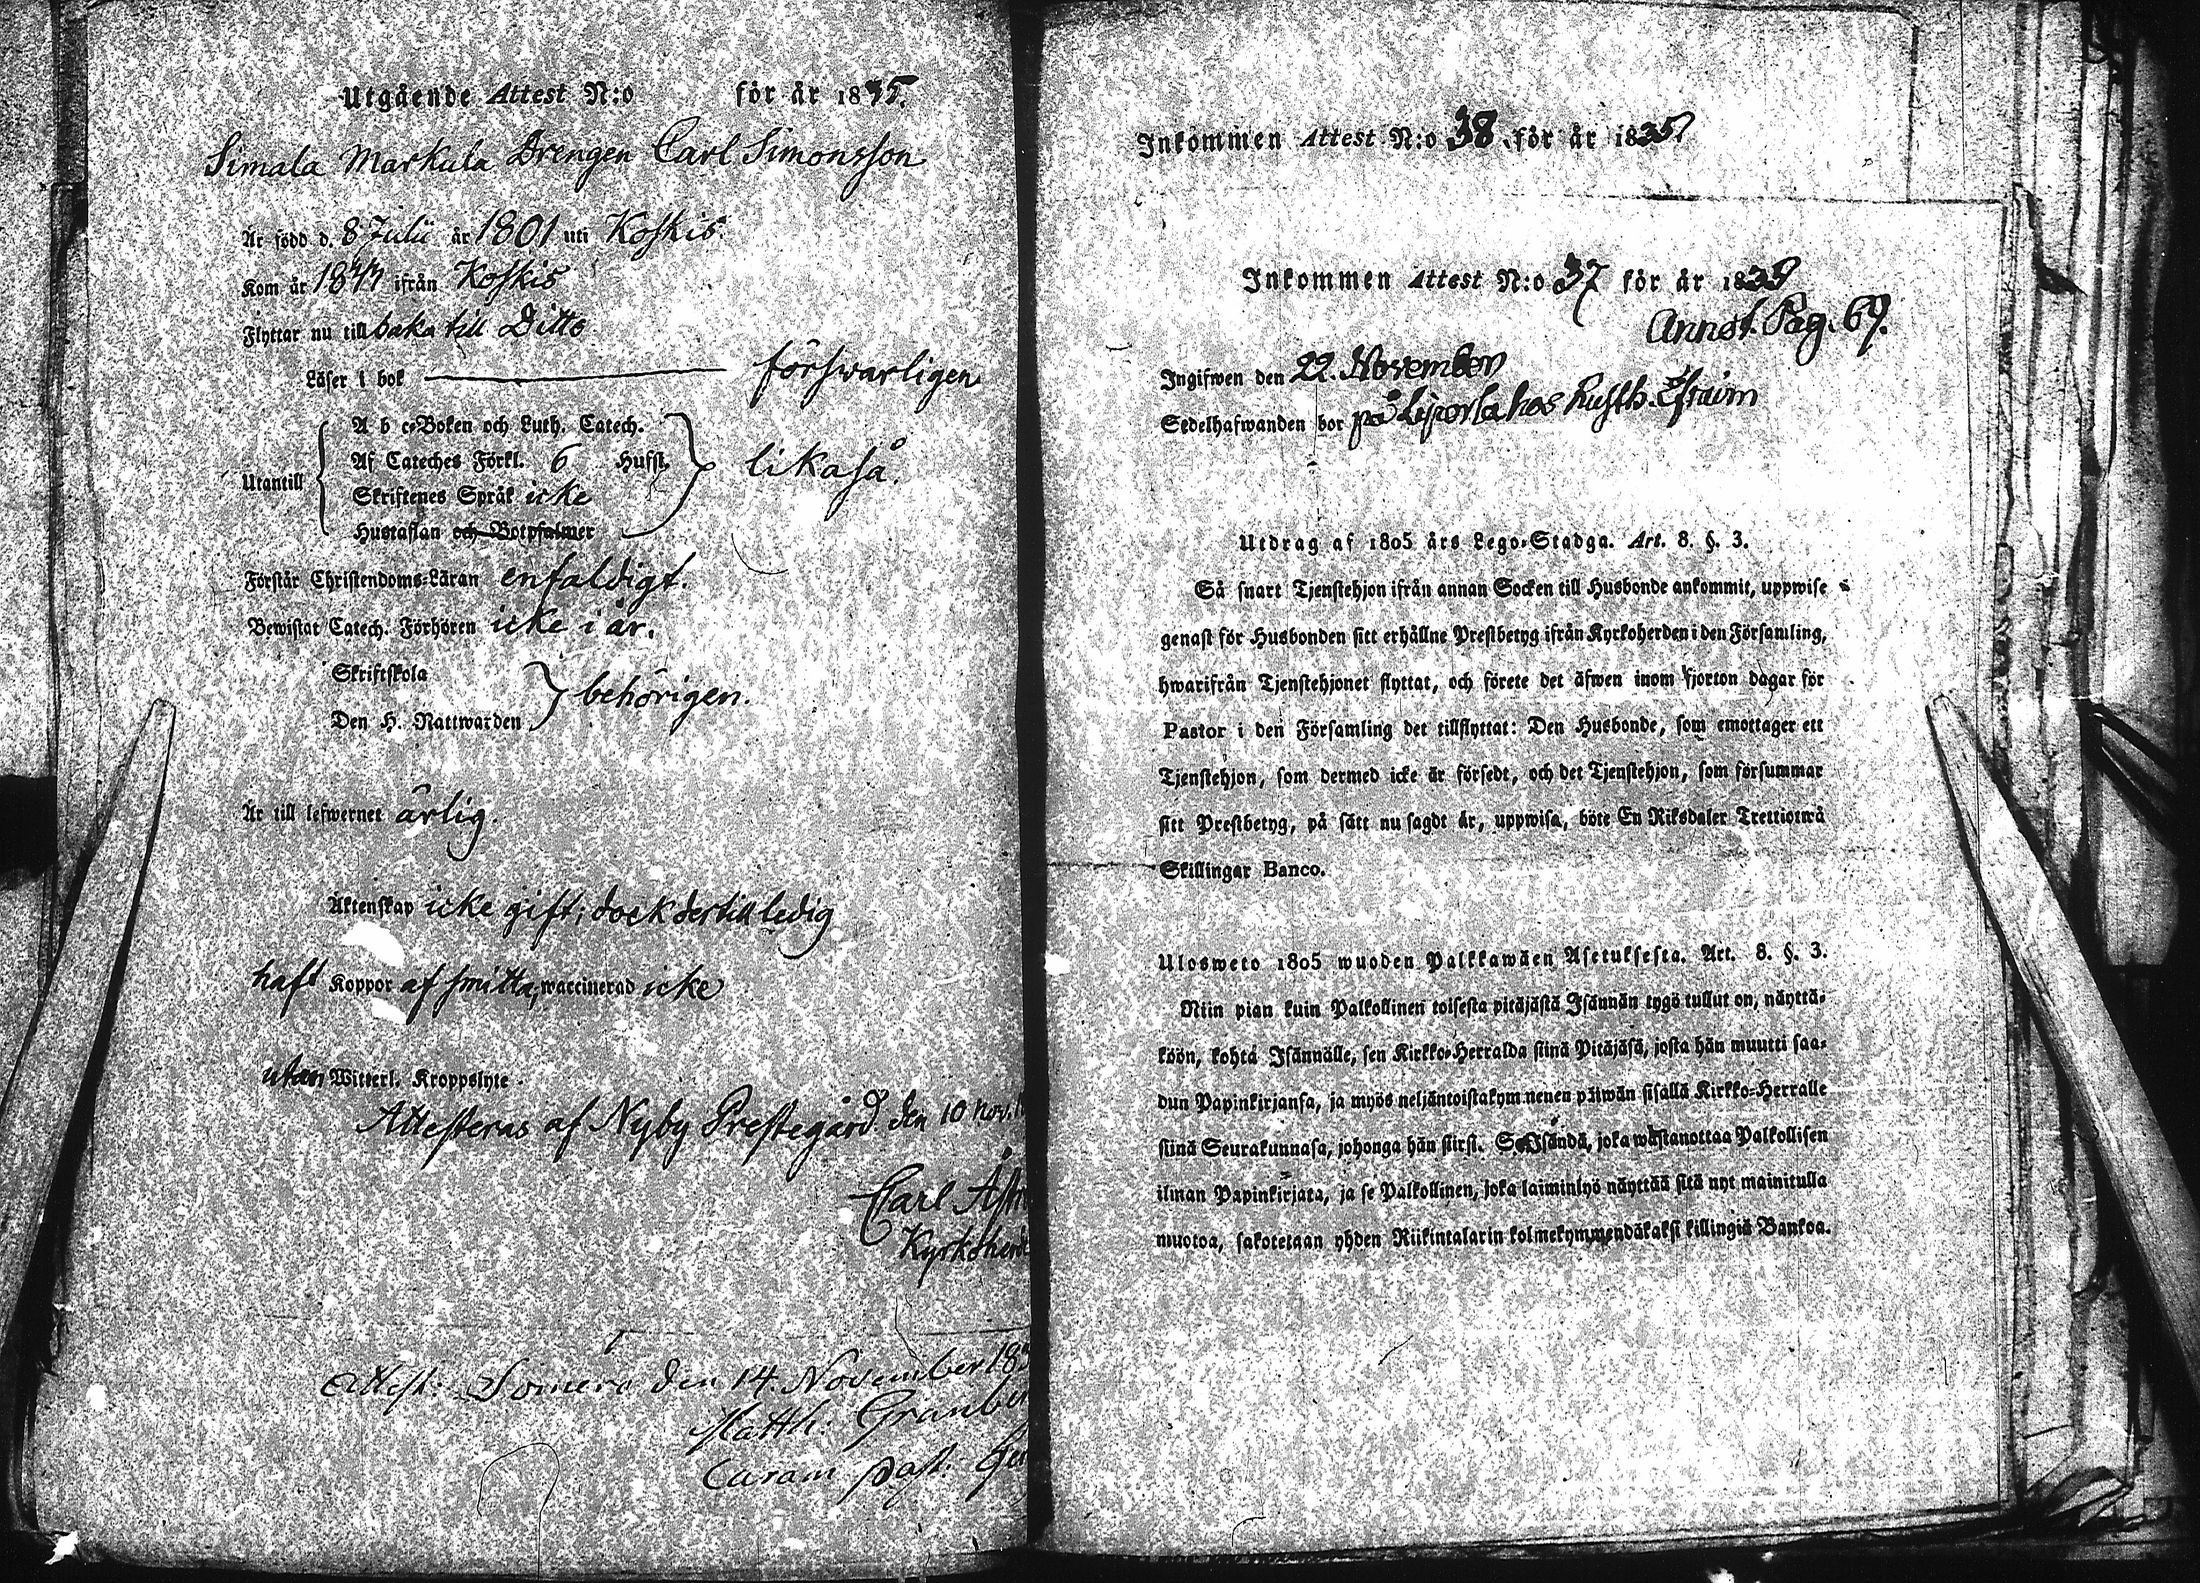 Utgående Attest N:o för år 1835.
Simala Markula Drengen Carl Simonsson
Är född d. 8 Julii år 1801 uti Koskis.
Kom år ifrån Koskis
Flyttar nu till baka till Ditto
Läser i bok förswarligen
A b c-Boken och Luth. Catech.
Af Cateches Förkl. 6 Hufst.
Utantill likaså.
Skriftenes Språk icke
Hustaflan och Botpsalmer
Förstår Christendoms-Läran enfaldigt.
Bewistat Catech. Förhören icke i år.
Skriftskola
behörigen.
Den H. Nattwarden
Är till lefwernet ärlig.
Äktenskap icke gift; dock dertill ledig
haft Koppor af smitta, waccinerad icke
utan Witterl. Kroppslyte.
Attesteras af Nyby Prestegård den 10 Nov.
Carl
Kyrkoherde
Attest: Somero den 14 November 183
Matth: Granbe
Curam past:
Inkommen Attest N:o 38 för år 1835
Inkommen Attest N:o 37 för år 1835
Annot. Pag. 69.
Ingifwen den 22 November
Sedelhafwanden bor på Liporla hos Rusth. Efraim
Utdrag af 1805 års Lego-Stadga. Art. 8. §. 3.
Så snart Tjenstehjon ifrån annan Socken till Husbonde ankommit, uppwise
genast för Husbonden sitt erhållne Prestbetyg ifrån Kyrkoherden i den Församling,
hwarifrån Tjenstehjonet flyttat, och förete det äfwen inom fjorton dagar för
Pastor i den Församling det tillflyttat: Den Husbonde, som emottager ett
Tjenstehjon, som dermed icke är försedt, och det Tjenstehjon, som försummar
sitt Prestbetyg, på sätt nu sagdt är, uppwisa, böte En Riksdaler Trettiotwå
Skillingar Banco.
Ulosweto 1805 wuoden Palkkawäen Asetuksesta. Art. 8. §. 3.
Niin pian kuin Palkollinen toisesta pitäjästä Isännän tygö tullut on, näyttä-
köön, kohta Isännälle, sen Kirkko-Herralda siinä Pitäjäsä, josta hän muutti saa-
dun Papinkirjansa, ja myös neljäntoistakymmenen päiwän sisällä Kirkko-Herralle
siinä Seurakunnasa, johonga hän siirsi. Se Isändä, joka wastanottaa Palkollisen
ilman Papinkirjata, ja se Palkollinen, joka laiminlyö näyttää sitä nyt mainitulla
muotoa, sakotetaan yhden Riikintalarin kolmekymmendäkaksi killingiä Bankoa.